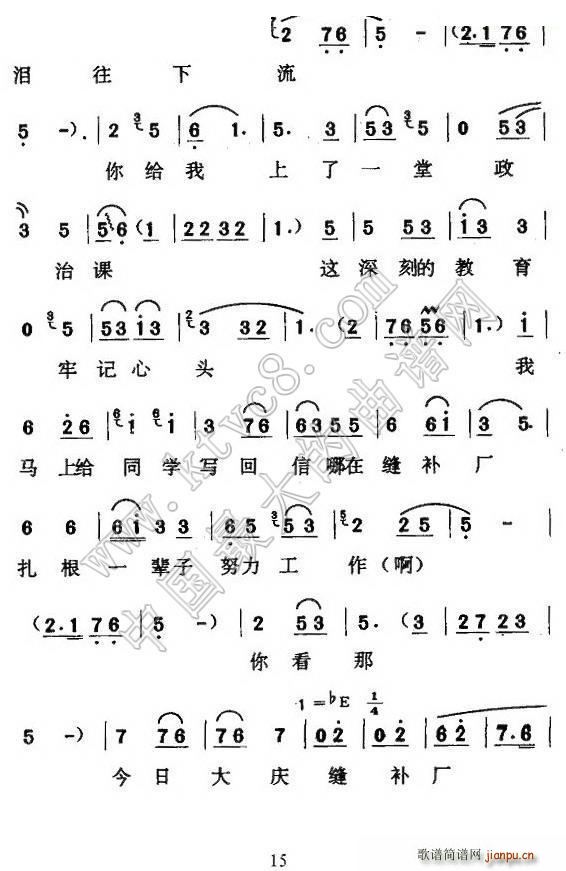 2 76 | 5 - | (2.1 76 |
泪 往 下 流
5 -). | 2 3 5 | 6 1. | 5. 3 | 53 3 5 | 0 53 |
你给我 上了一堂 政
3 5 | 56 (1 | 2232 | 1.) 5 | 5 53 | i3 3 |
治课 这深刻的教育
0 5 | 53 i3 | 2 3 32 | 1. (2 | 76 56 | 1.) i |
牢记心 头 我
6 26 | 6 i 6 i | 3 76 | 6355 | 6 6i | 3 5. |
马上给同学写回信哪在缝补厂
6 6 | 6i 33 | 65 53 | 3 2 2 | 25 | 5 - |
扎根一辈子努力工 作(啊)
(2.1 76 | 5 -) | 2 53 | 5. (3 | 27 23 |
你看那
1=bE 1/4
5 -) | 7 76 | 76 7 | 02 | 02 | 62 | 7.6 |
今日大庆缝补厂
www.ktvc8.com
中国最大的曲谱网
15
歌谱简谱网
jianpu.cn